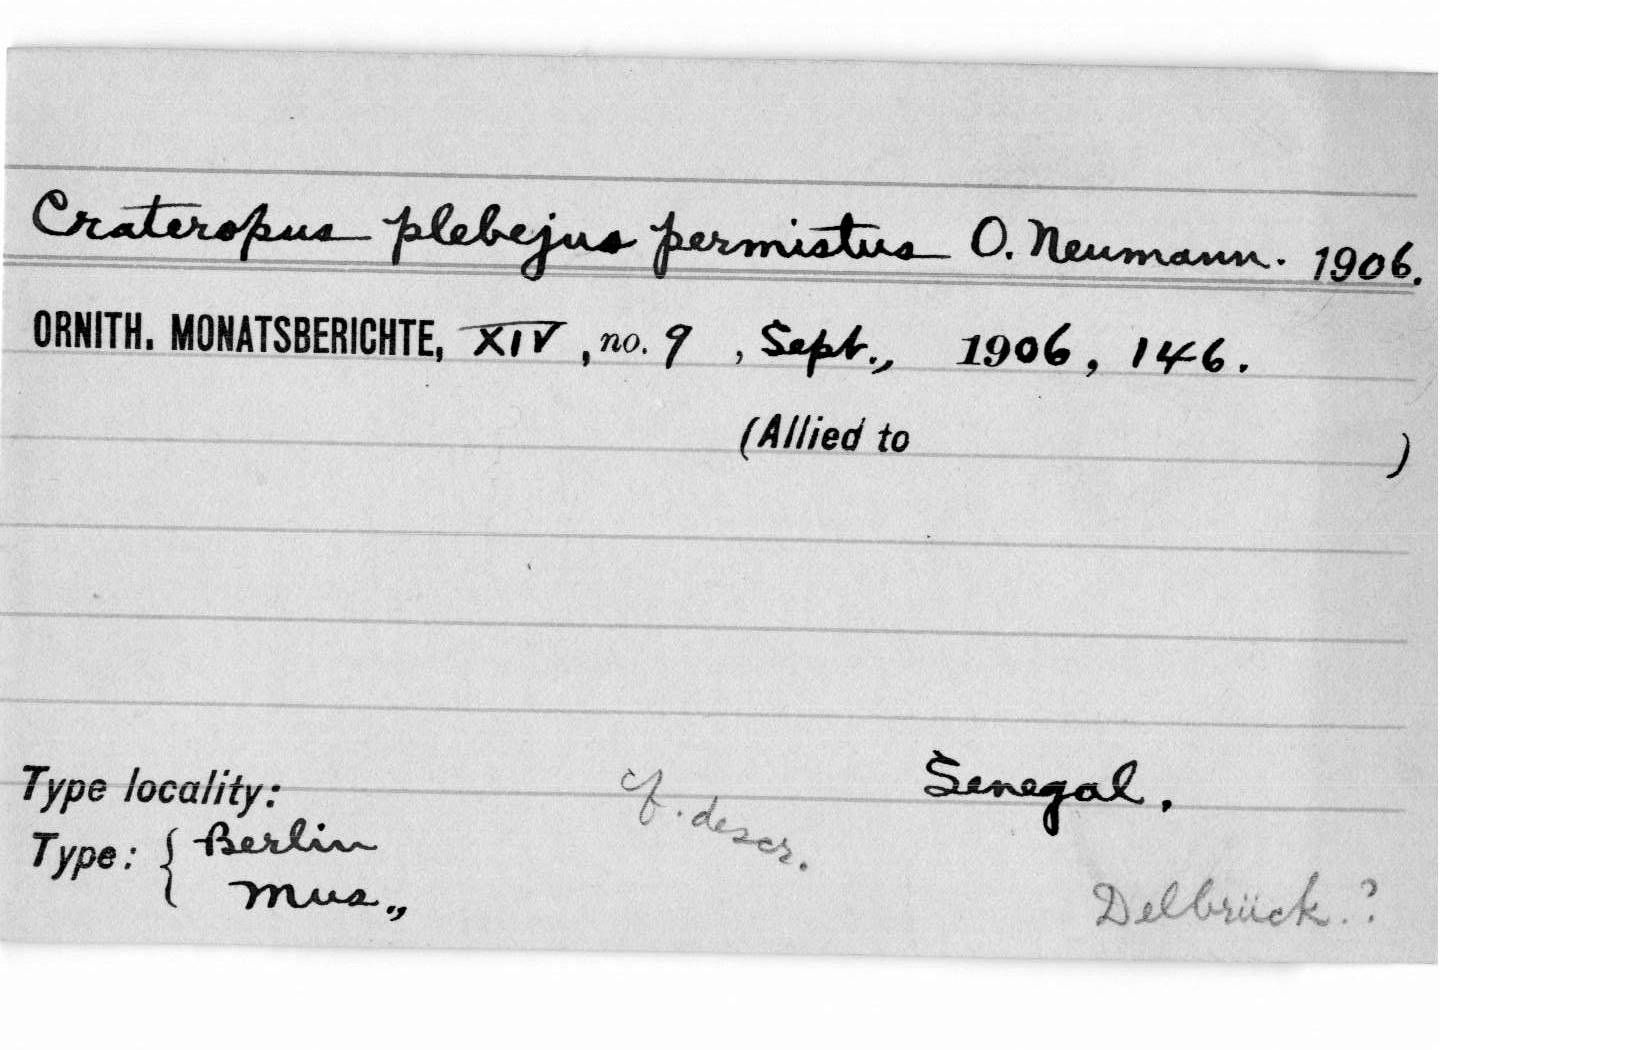 Crateropus plebejus permistus O. Neumann. 1906.
ORNITH. MONATSBERICHTE, XIV, no. 9, Sept., 1906, 146.
(Allied to )
Type locality: Senegal.
cf. descr.
Type: { Berlin
Mus.,
Delbrück.?